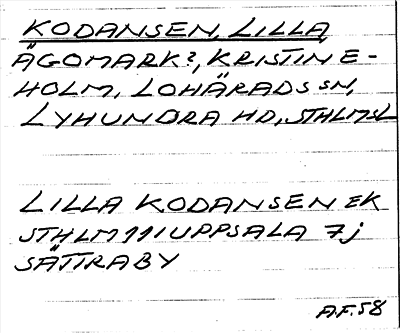 KODANSEN, LILLA
ÄGOMARK?, KRISTINE-
HOLM, LOHÄRADS SN,
LYHUNDRA HD, STHLMSL
LILLA KODANSEN EK
STHLM 111 UPPSALA 7j
SÄTTRABY
A.F. 58